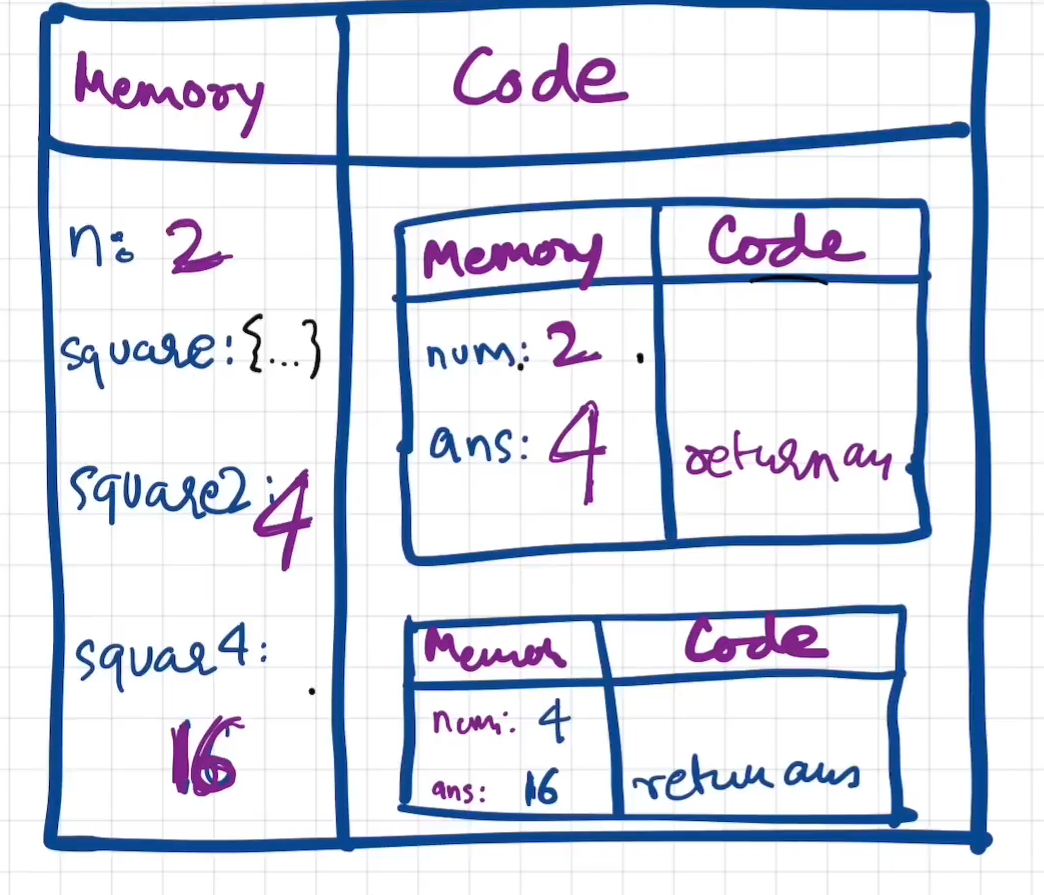 Memory Code
n: 2
square: {...}
square2: 4
squar4:
16
Memory Code
num: 2
ans: 4
return an
Memor Code
num: 4
ans: 16
return ans